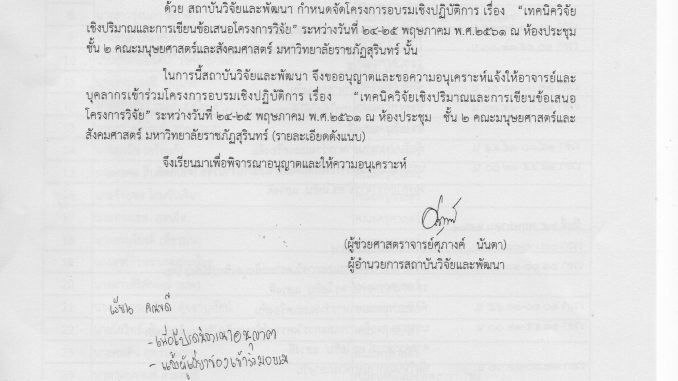 ด้วย สถาบันวิจัยและพัฒนา กำหนดจัดโครงการอบรมเชิงปฏิบัติการ เรื่อง “เทคนิควิจัย
เชิงปริมาณและการเขียนข้อเสนอโครงการวิจัย” ระหว่างวันที่ ๒๔-๒๕ พฤษภาคม พ.ศ.๒๕๖๑ ณ ห้องประชุม
ชั้น ๒ คณะมนุษยศาสตร์และสังคมศาสตร์ มหาวิทยาลัยราชภัฏสุรินทร์ นั้น
ในการนี้สถาบันวิจัยและพัฒนา จึงขออนุญาตและขอความอนุเคราะห์แจ้งให้อาจารย์และ
บุคลากรเข้าร่วมโครงการอบรมเชิงปฏิบัติการ เรื่อง “เทคนิควิจัยเชิงปริมาณและการเขียนข้อเสนอ
โครงการวิจัย” ระหว่างวันที่ ๒๔-๒๕ พฤษภาคม พ.ศ.๒๕๖๑ ณ ห้องประชุม ชั้น ๒ คณะมนุษยศาสตร์และ
สังคมศาสตร์ มหาวิทยาลัยราชภัฏสุรินทร์ (รายละเอียดดังแนบ)
จึงเรียนมาเพื่อพิจารณาอนุญาตและให้ความอนุเคราะห์
(ผู้ช่วยศาสตราจารย์ศุภางค์ นันตา)
ผู้อำนวยการสถาบันวิจัยและพัฒนา
เรียน คณบดี
-เพื่อโปรดพิจารณาอนุญาต
-แจ้งผู้เกี่ยวข้องเข้าร่วมอบรม